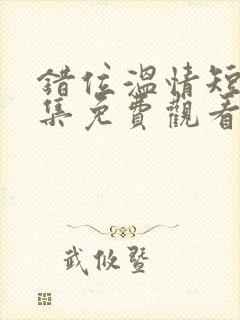 錯位溫情短
集免費觀看
武攸暨